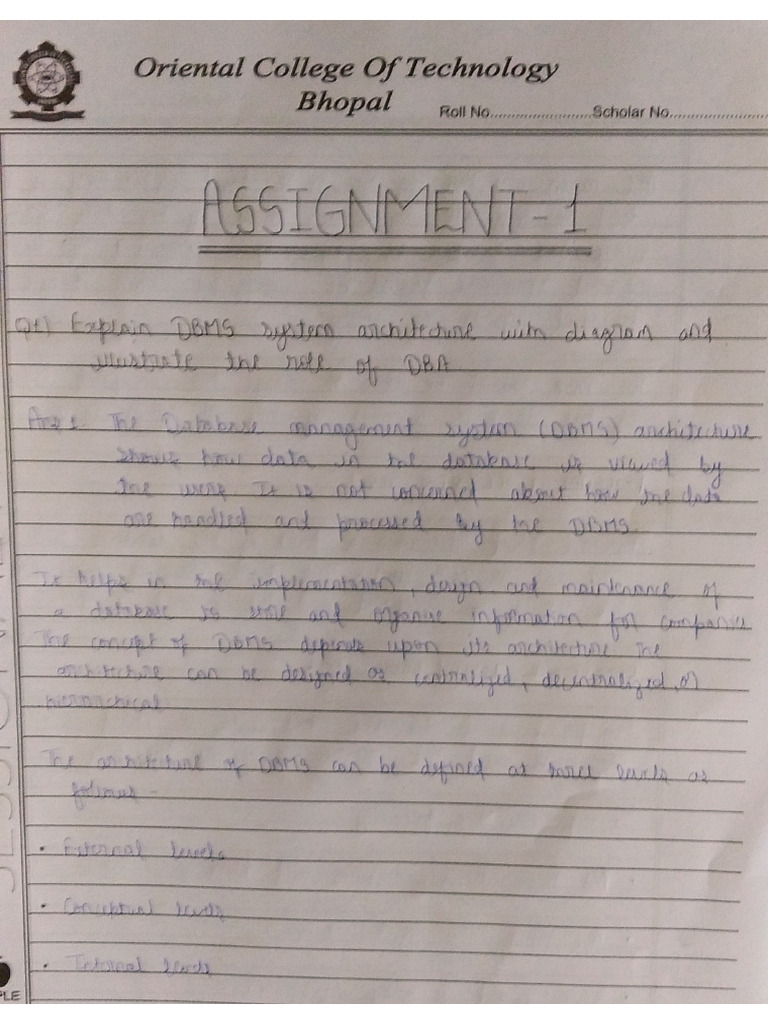 Oriental College Of Technology
Bhopal
Roll No........................Scholar No........................
ASSIGNMENT-1
Q1) Explain DBMS system architecture with diagram and
illustrate the role of DBA
Ans 1. The Database management system (DBMS) architecture
shows how data in the database is viewed by
the users It is not concerned about how the data
are handled and processed by the DBMS.
It helps in the implementation, design and maintenance of
a database to store and organise information for companies
The concept of DBMS depends upon its architecture The
architecture can be designed as centralized, decentralized, or
hierarchical
The architecture of DBMS can be defined at three levels as
follows -
• External levels
• Conceptual levels
• Internal levels
PLE